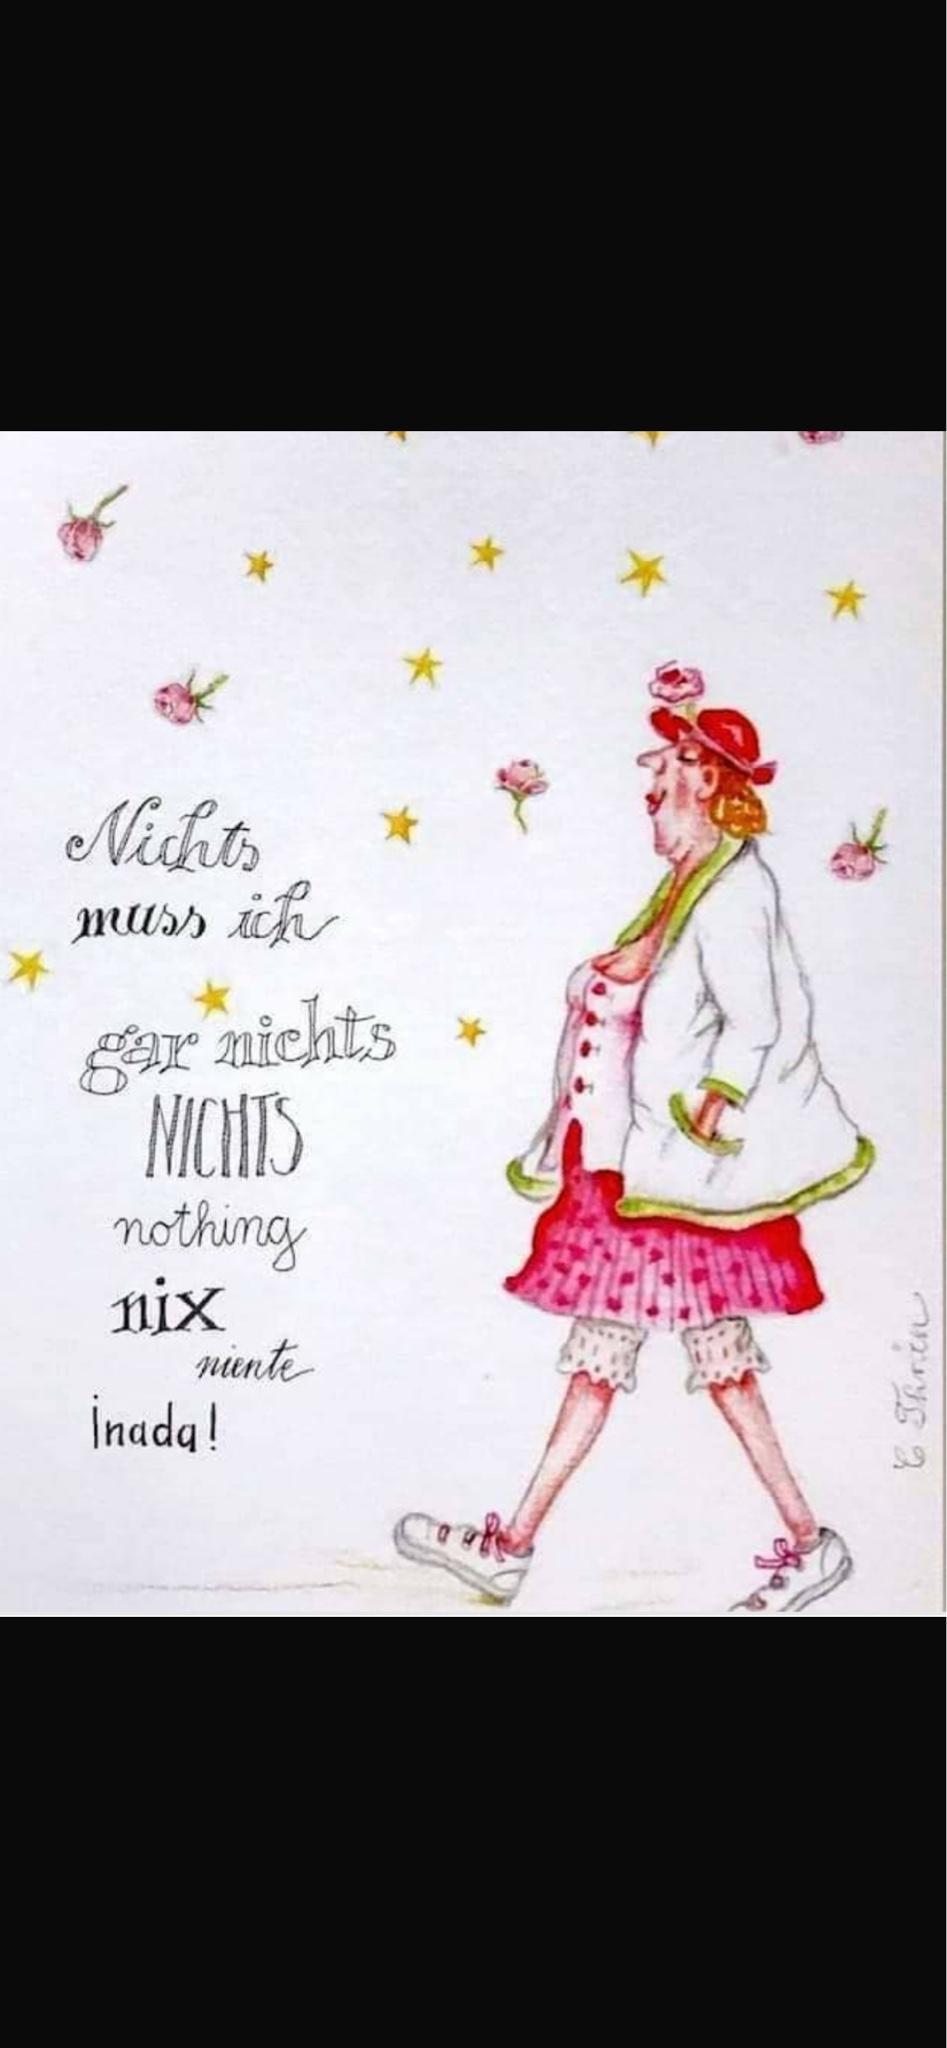 Nichts
muss ich
gar nichts
NICHTS
nothing
nix
niente
¡nada!
C Thrien